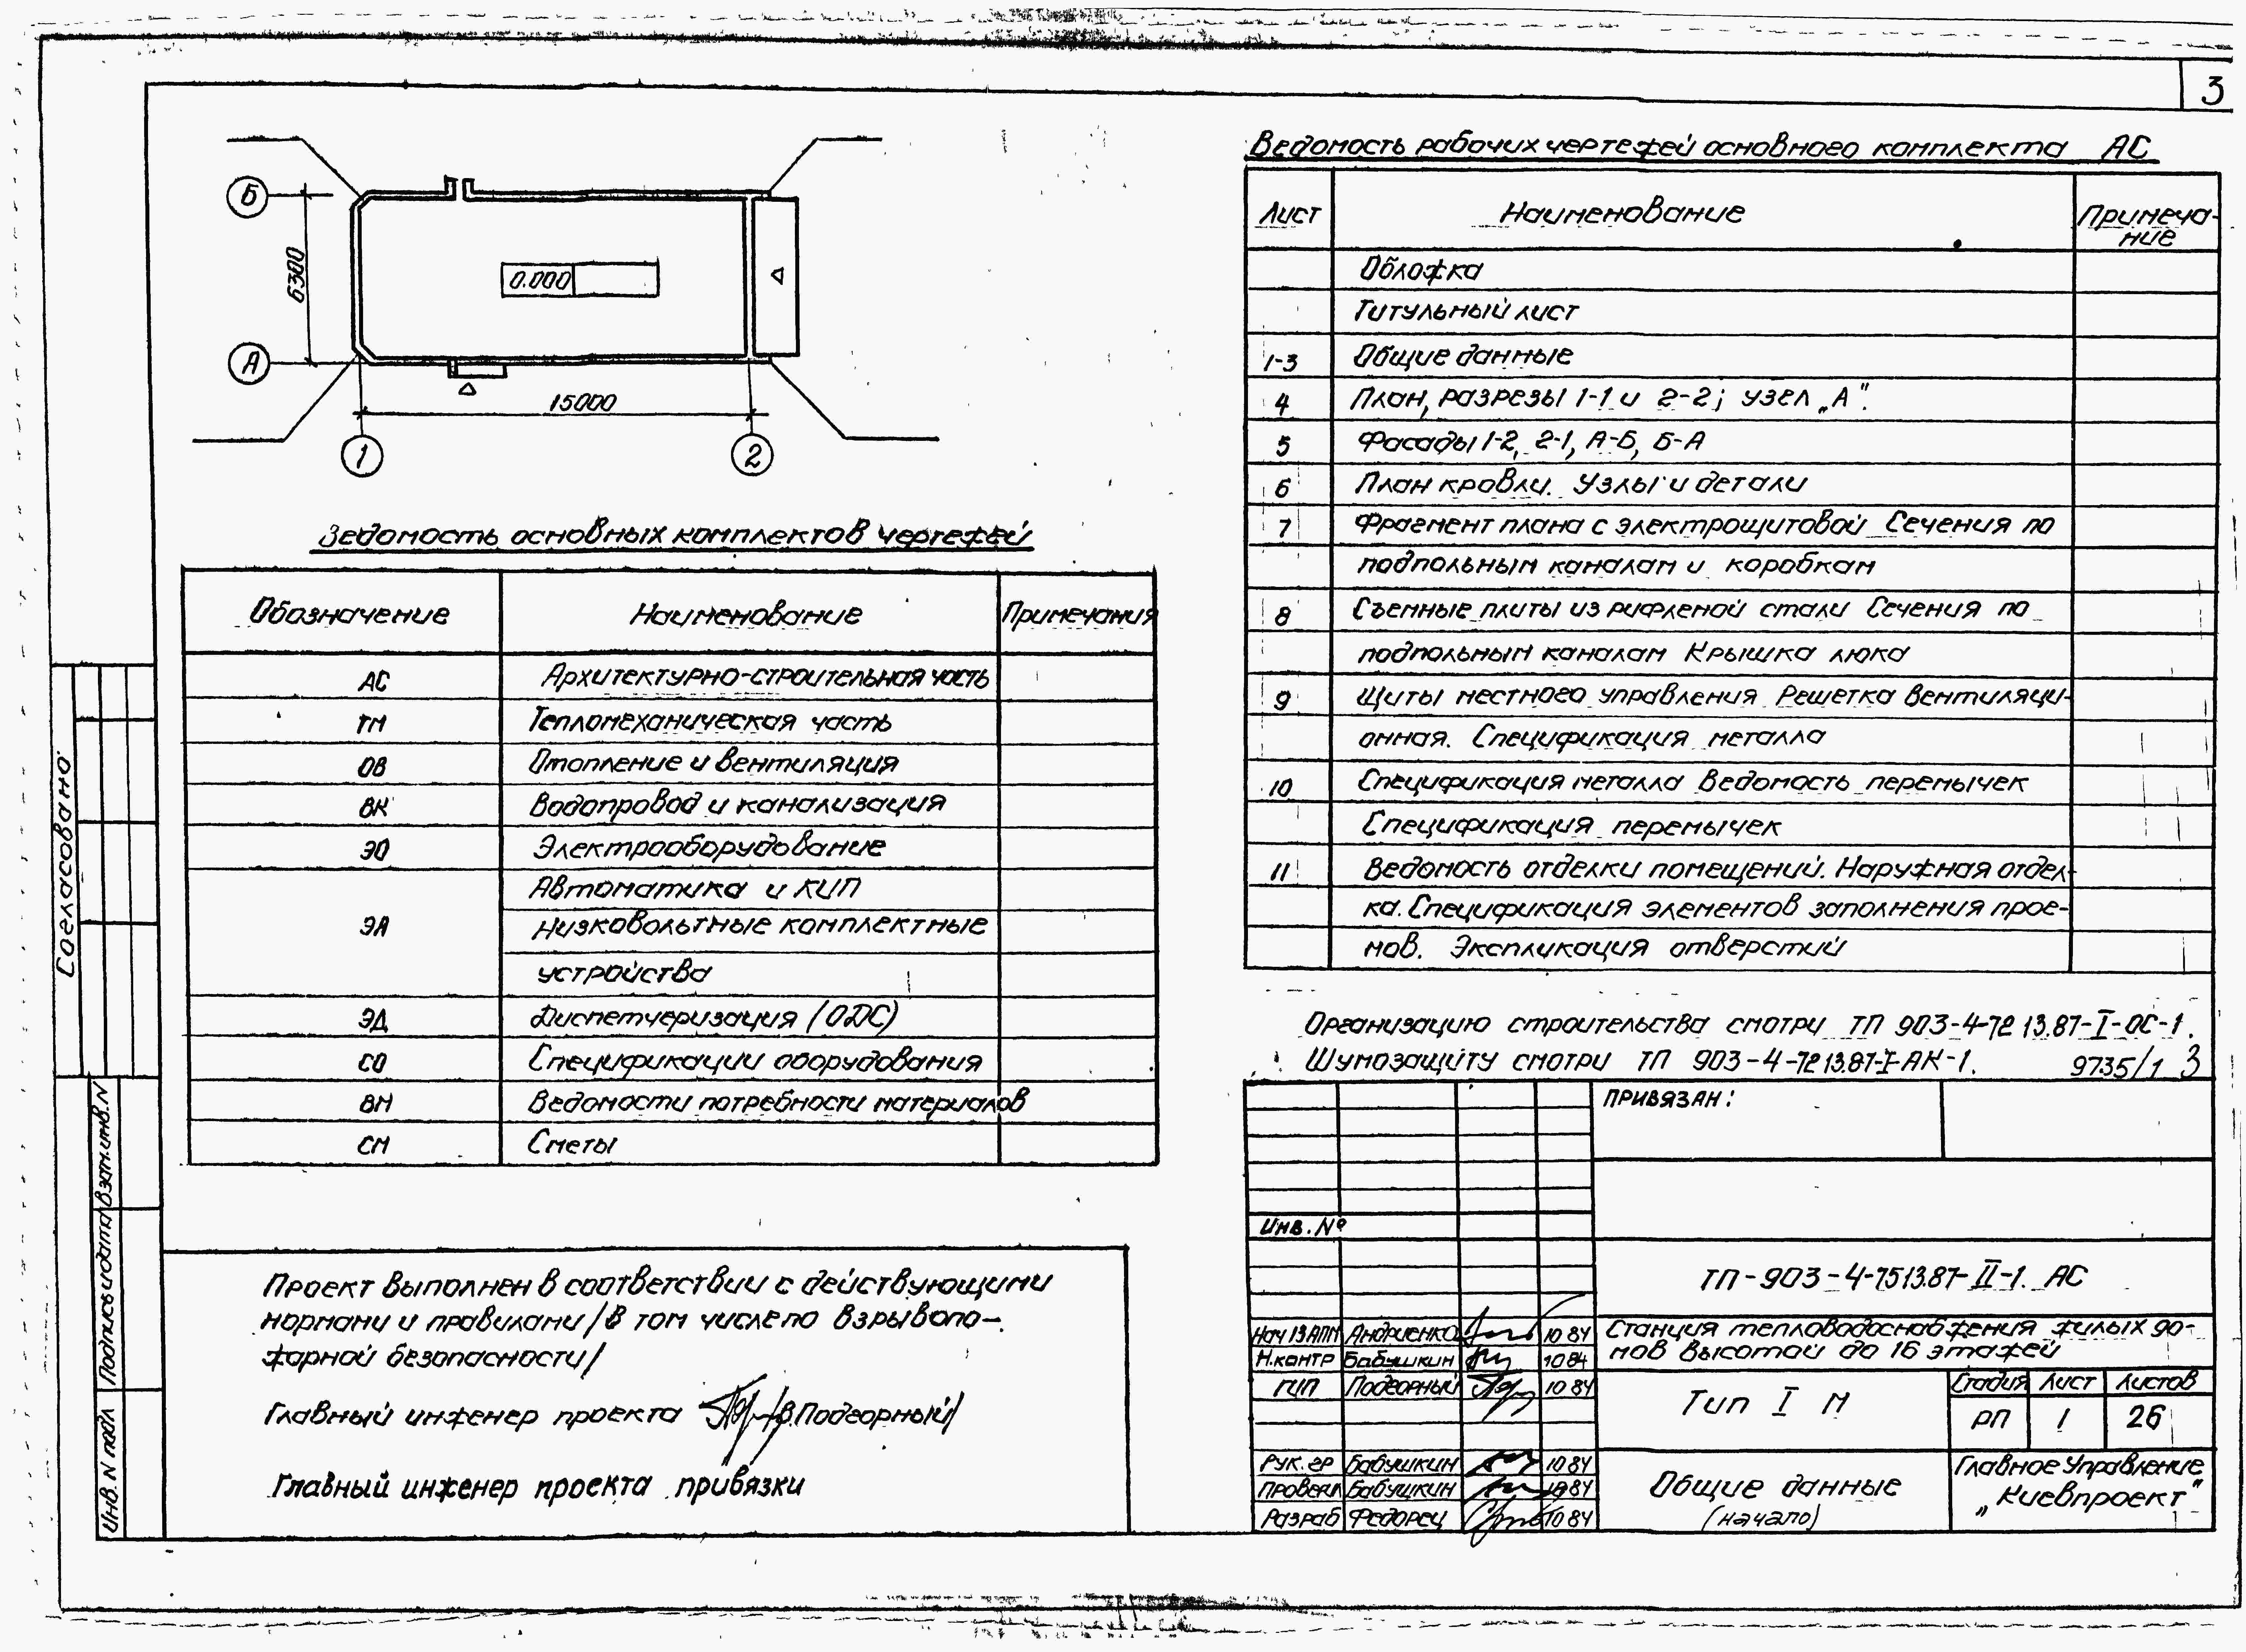 3
Б
6300
0.000
А
15000
1
2
Ведомость основных комплектов чертежей
Обозначение
Наименование
Примечания
АС
Архитектурно-строительная часть
ТМ
Тепломеханическая часть
ОВ
Отопление и вентиляция
ВК
Водопровод и канализация
ЭО
Электрооборудование
Автоматика и КИП
ЭА
Низковольтные комплектные
устройства
ЭД
Диспетчеризация (ОДС)
СО
Спецификации оборудования
ВМ
Ведомости потребности материалов
СМ
Сметы
Проект выполнен в соответствии с действующими
нормами и правилами /в том числе по взрывопо-
жарной безопасности/
Главный инженер проекта /В.Подгорный/
Главный инженер проекта привязки
Согласовано
Взам.инв.N
Подпись и дата
Инв. N подл
Ведомость рабочих чертежей основного комплекта АС
Лист
Наименование
Примеча-
ние
Обложка
Титульный лист
1-3
Общие данные
4
План, разрезы 1-1 и 2-2; узел „А".
5
Фасады 1-2, 2-1, А-Б, Б-А
6
План кровли. Узлы и детали
7
Фрагмент плана с электрощитовой Сечения по
подпольным каналам и коробкам
8
Съемные плиты из рифленой стали Сечения по
подпольным каналам Крышка люка
9
Щиты местного управления Решетка вентиляци-
онная. Спецификация металла
10
Спецификация металла Ведомость перемычек
Спецификация перемычек
11
Ведомость отделки помещений. Наружная отдел-
ка. Спецификация элементов заполнения прое-
мов. Экспликация отверстий
Организацию строительства смотри ТП 903-4-72 13.87-I-ОС-1.
Шумозащиту смотри ТП 903-4-72 13.87-I-АК-1.
9735/1 3
ПРИВЯЗАН:
Инв. №
ТП-903-4-75 13.87-II-1. АС
Нач 13 АПМ Андриенко 10 84
Н.контр Бабушкин 10 84
ГИП Подгорный 10 84
Рук. гр Бабушкин 10 84
Провери Бабушкин 10 84
Разраб Федорец 10 84
Станция тепловодоснабжения жилых до-
мов высотой до 16 этажей
Тип I М
Стадия Лист Листов
РП 1 26
Общие данные
(начало)
Главное Управление
„Киевпроект"